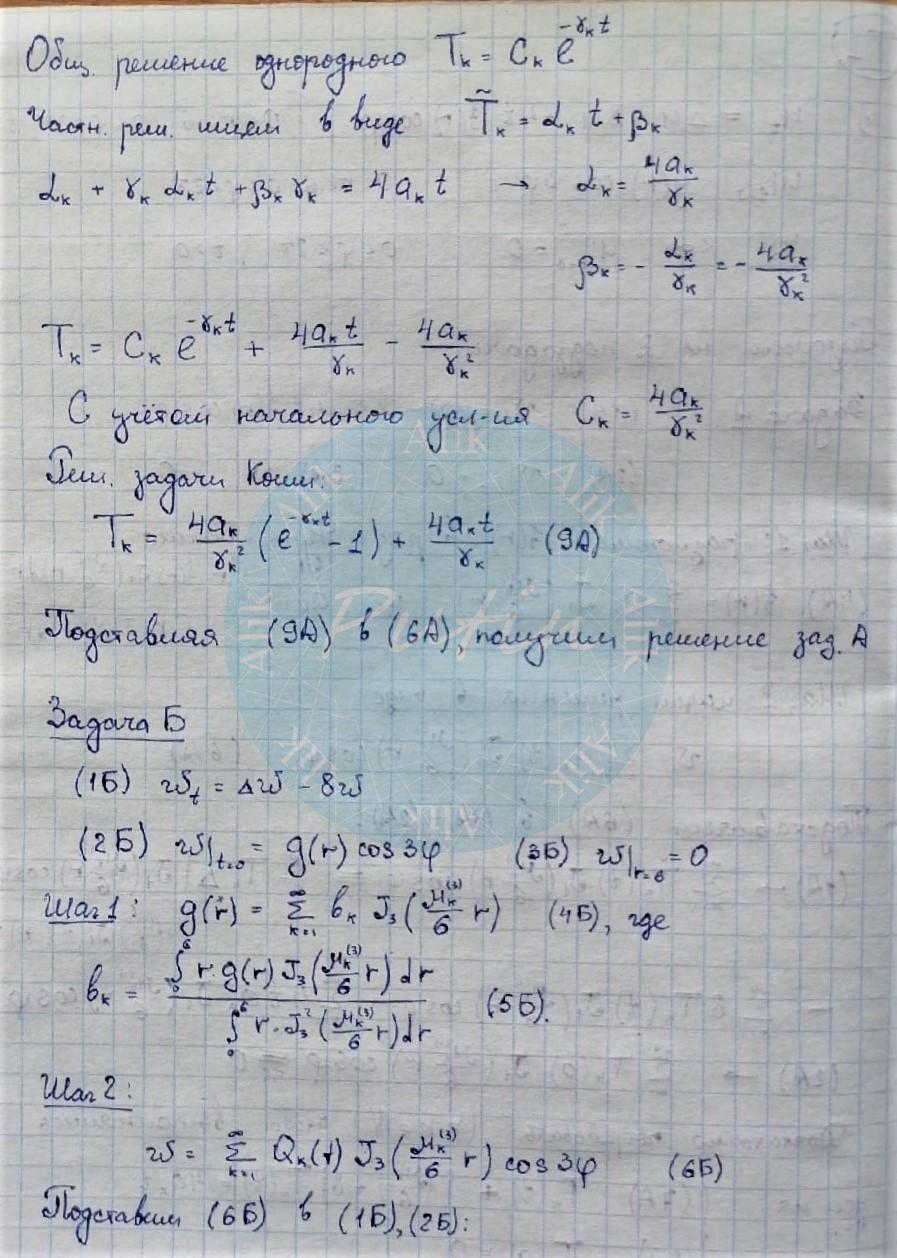 Общ. решение однородного T_k = C_k e^{-γ_k t}
Частн. реш. ищем в виде T̃_k = α_k t + β_k
α_k + γ_k α_k t + β_k γ_k = 4a_k t → α_k = 4a_k/γ_k
β_k = - α_k/γ_k = - 4a_k/γ_k²
T_k = C_k e^{-γ_k t} + 4a_k t/γ_k - 4a_k/γ_k²
С учётом начального усл-ия C_k = 4a_k/γ_k²
Реш. задачи Коши:
T_k = 4a_k/γ_k² (e^{-γ_k t} - 1) + 4a_k t/γ_k (9А)
Подставляя (9А) в (6А), получим решение зад. А
Задача Б
(1Б) w_t = Δw - 8w
(2Б) w|_{t=0} = g(r) cos 3φ (3Б) w|_{r=6} = 0
Шаг 1: g(r) = ∑_{k=1}^{∞} b_k J_3(μ_k^{(3)}/6 r) (4Б), где
b_k = ∫_0^6 r·g(r) J_3(μ_k^{(3)}/6 r) dr / ∫_0^6 r·J_3²(μ_k^{(3)}/6 r) dr (5Б).
Шаг 2:
w = ∑_{k=1}^{∞} Q_k(t) J_3(μ_k^{(3)}/6 r) cos 3φ (6Б)
Подставим (6Б) в (1Б), (2Б):